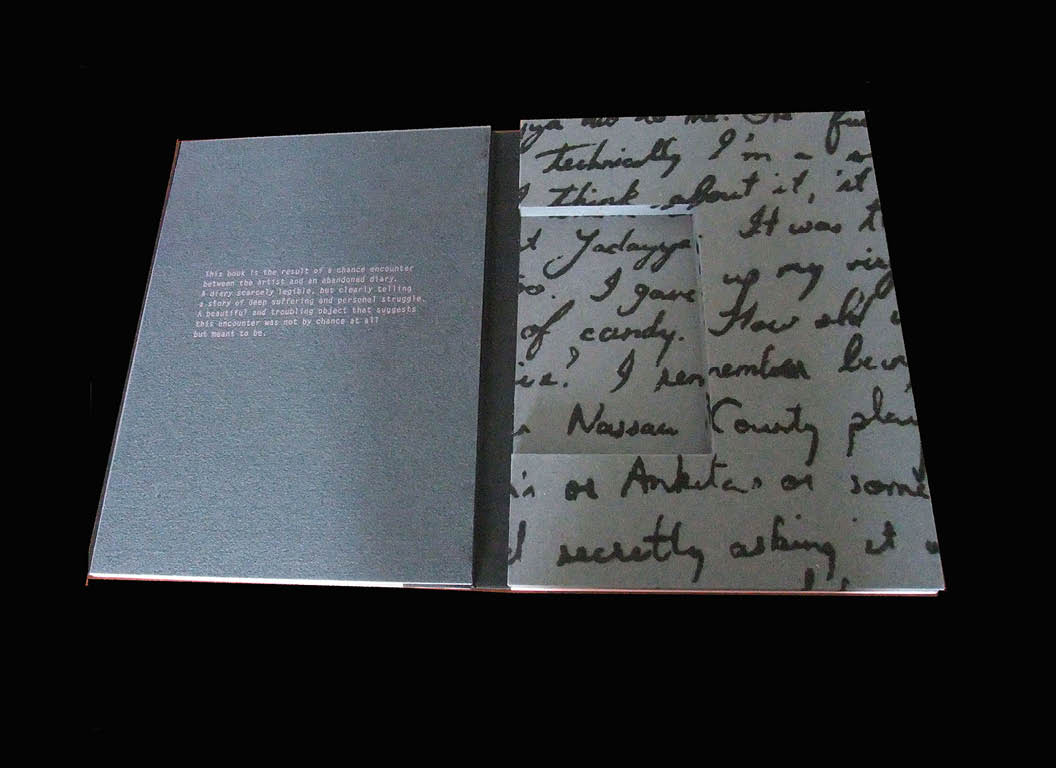 This book is the result of a chance encounter
between the artist and an abandoned diary.
A diary scarcely legible, but clearly telling
a story of deep suffering and personal struggle.
A beautiful and troubling object that suggests
this encounter was not by chance at all
but meant to be.
to me.
technically I'm a
I think about it, it
Yadayya. It was
I gave up my
of candy. How old
I remember
Nassau County
or Ankita's or some
secretly asking it